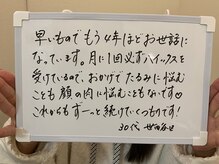 早いものでもう4年ほどお世話に
なっています。月に1回必ずハイックスを
受けているので、おかげでたるみに悩む
ことも顔の肉に悩むこともないです♡
これからもずーっと続けていくつもりです!
30代 世田谷区